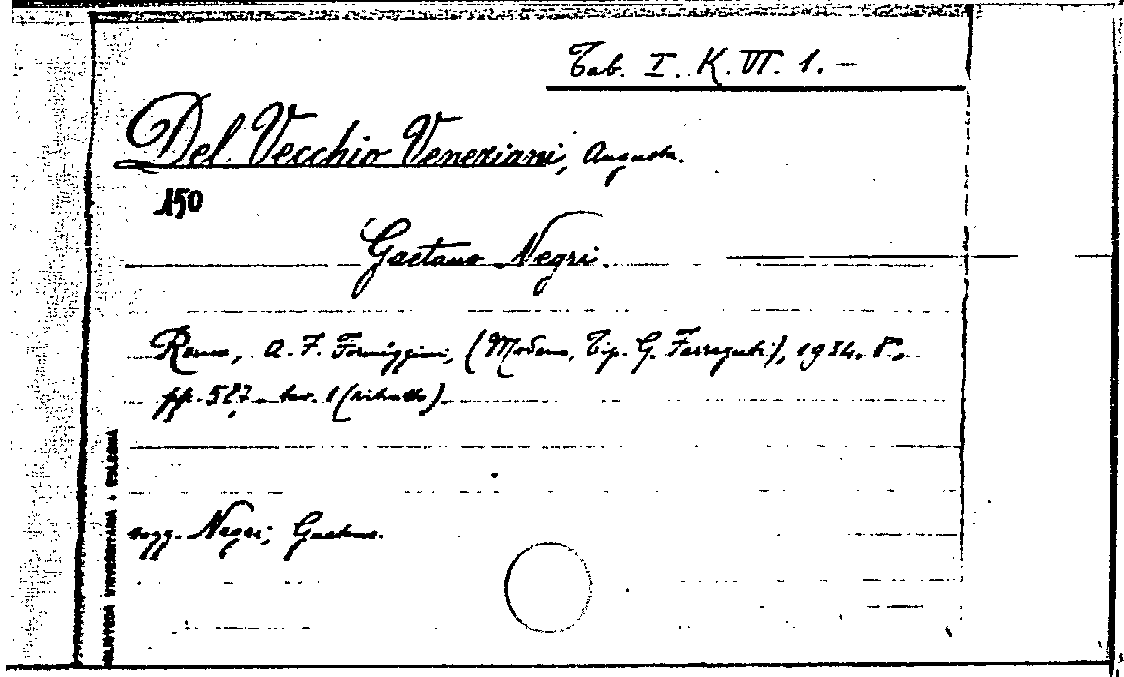 Tab. I. K. VI. 1. –
Del Vecchio Veneziani, Augusta.
150
Gaetano Negri.
Roma, A. F. Formíggini, (Modena, Tip. G. Ferraguti), 1934. 8°,
pp. 587. tav. 1 (ritratto)
sogg. Negri, Gaetano.
BIBLIOTECA UNIVERSITARIA • BOLOGNA